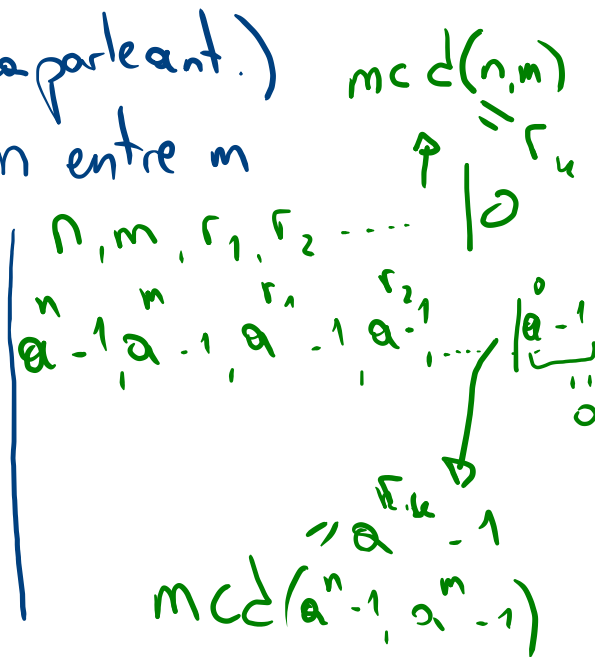 aparteant.)
mcd(n,m)
n entre m
= r_k
n, m, r_1, r_2 ..... | 0
a^n - 1, a^m - 1, a^{r_1} - 1, a^{r_2} - 1, ..... | a^0 - 1
= 0
= a^{r_k} - 1
mcd(a^n - 1, a^m - 1)